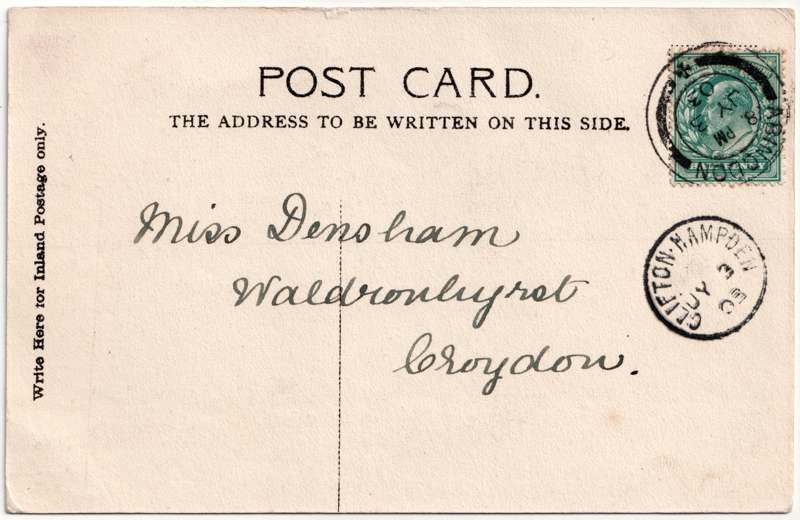 POST CARD.
THE ADDRESS TO BE WRITTEN ON THIS SIDE.
Write Here for Inland Postage only.
ABINGDON
8 PM
JY 3
03
HALFPENNY
CLIFTON·HAMPDEN
JY 3
03
Miss Densham
Waldronhyrst
Croydon.